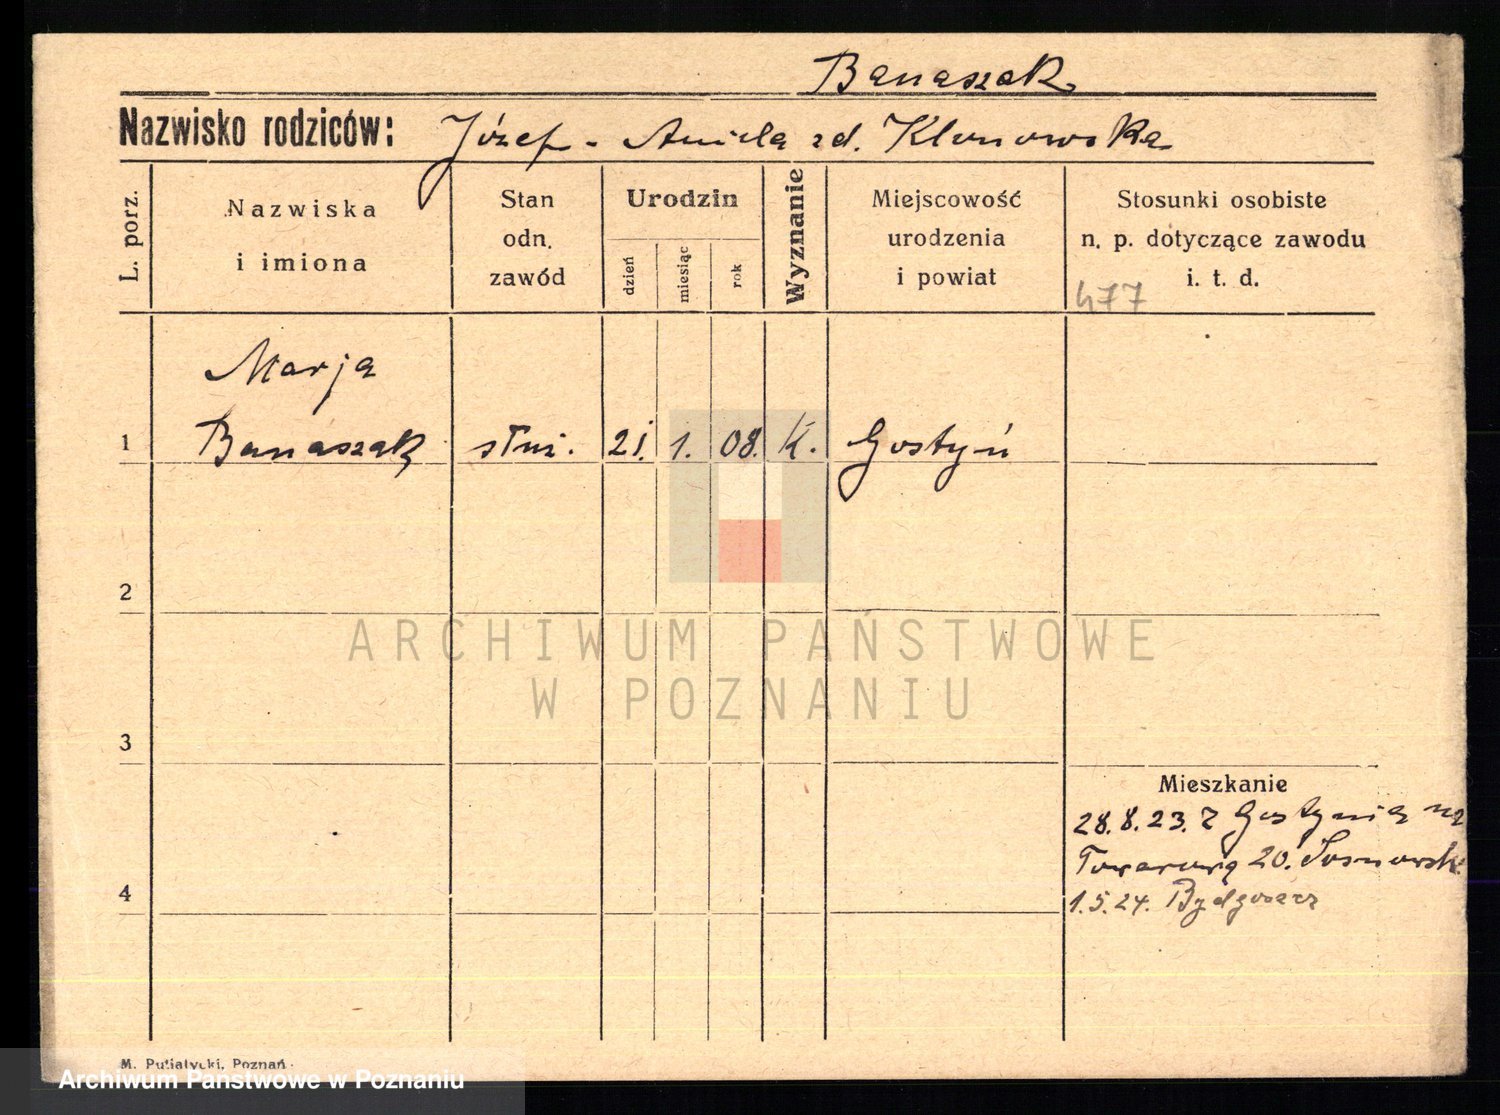 Banaszak
Nazwisko rodziców: Józef - Aniela zd. Klonowska
L. porz.
Nazwiska
i imiona
Stan
odn.
zawód
Urodzin
dzień
miesiąc
rok
Wyznanie
Miejscowość
urodzenia
i powiat
Stosunki osobiste
n. p. dotyczące zawodu
i. t. d.
477
Marja
1 Banaszak służ. 21. 1. 08. K. Gostyń
2
ARCHIWUM PAŃSTWOWE
W POZNANIU
3
Mieszkanie
28.8.23. z Gostynia na
Towarową 20. Sosnowsk.
4
1.5.24. Bydgoszcz
M. Putiatycki, Poznań
Archiwum Państwowe w Poznaniu